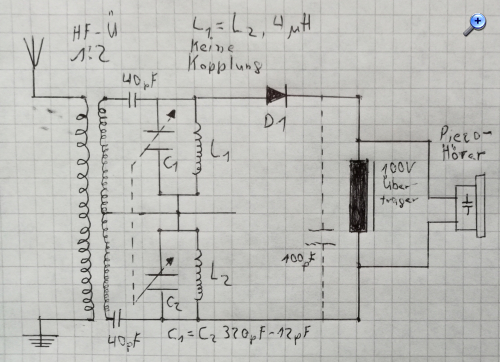 HF-Ü
1:2
L1 = L2, 4µH
Keine
Kopplung
40pF
D1
C1
L1
Piezo-
Hörer
100V
Über-
trager
100pF
L2
C2
40pF
C1 = C2 320pF-12pF